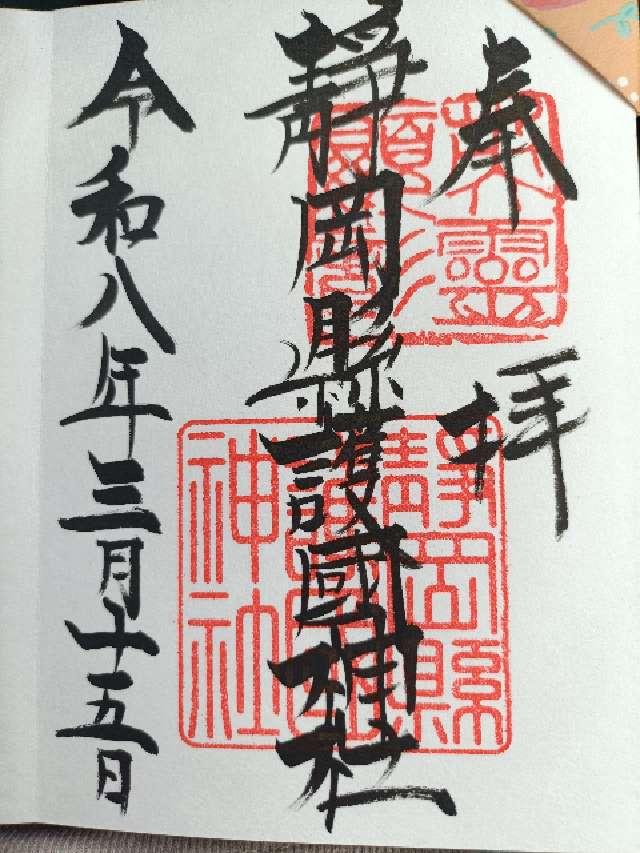 奉拝
靜岡縣護國神社
令和八年三月十五日
英靈顯彰
静岡縣護國神社